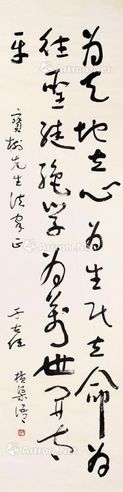 為天地立心為生民立命為
往聖繼絕學為萬世開太
平
寶樹先生法家正
于右任 橫渠語